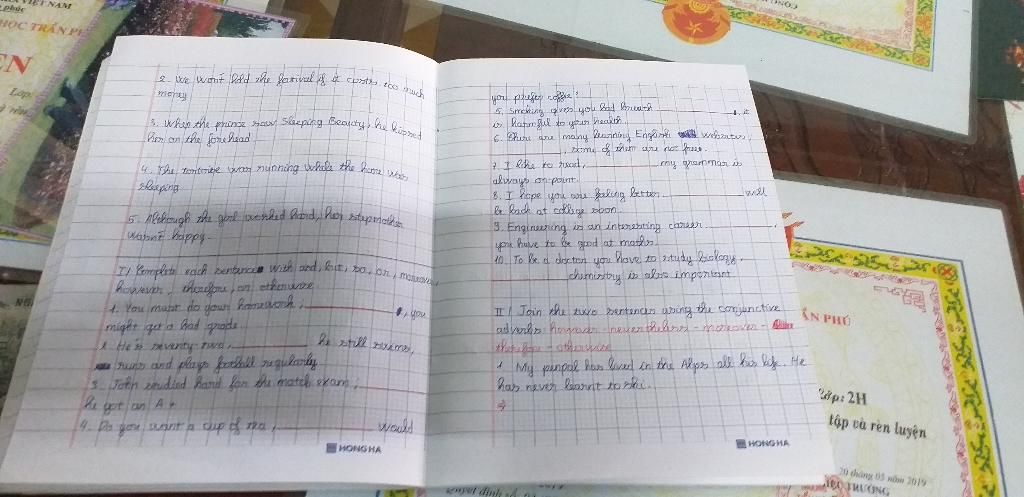 VIỆT NAM
phúc
HỌC TRẦN PH
EN
Lớp
2. We won't hold the festival if it costs too much
money
3. When the prince saw Sleeping Beauty, he kissed
her on the forehead
4. The tortoise was running while the hare was
sleeping
5. Although the girl worked hard, her stepmother
wasn't happy.
I/ Complete each sentence with and, but, so, or, moreover,
however, therefore, or otherwise
1. You must do your homework; , you
might get a bad grade
2. He's seventy-two, he still swims,
runs and plays football regularly
3. John studied hard for the math exam;
he got an A+
4. Do you want a cup of tea, would
HONG HA
you prefer coffee?
5. Smoking gives you bad breath , it
is harmful to your health
6. There are many learning English websites,
, some of them are not free.
7. I like to read, my grammar is
always on-point.
8. I hope you are feeling better will
be back at college soon.
9. Engineering is an interesting career ,
you have to be good at maths.
10. To be a doctor you have to study biology,
chemistry is also important
II/ Join the two sentences using the conjunctive
adverbs however - nevertheless - moreover -
therefore - otherwise
1. My penpal has lived in the Alps all his life. He
has never learnt to ski.
⇒
HONG HA
ẦN PHÚ
Lớp: 2H
tập và rèn luyện
20 tháng 05 năm 2019
HIỆU TRƯỞNG